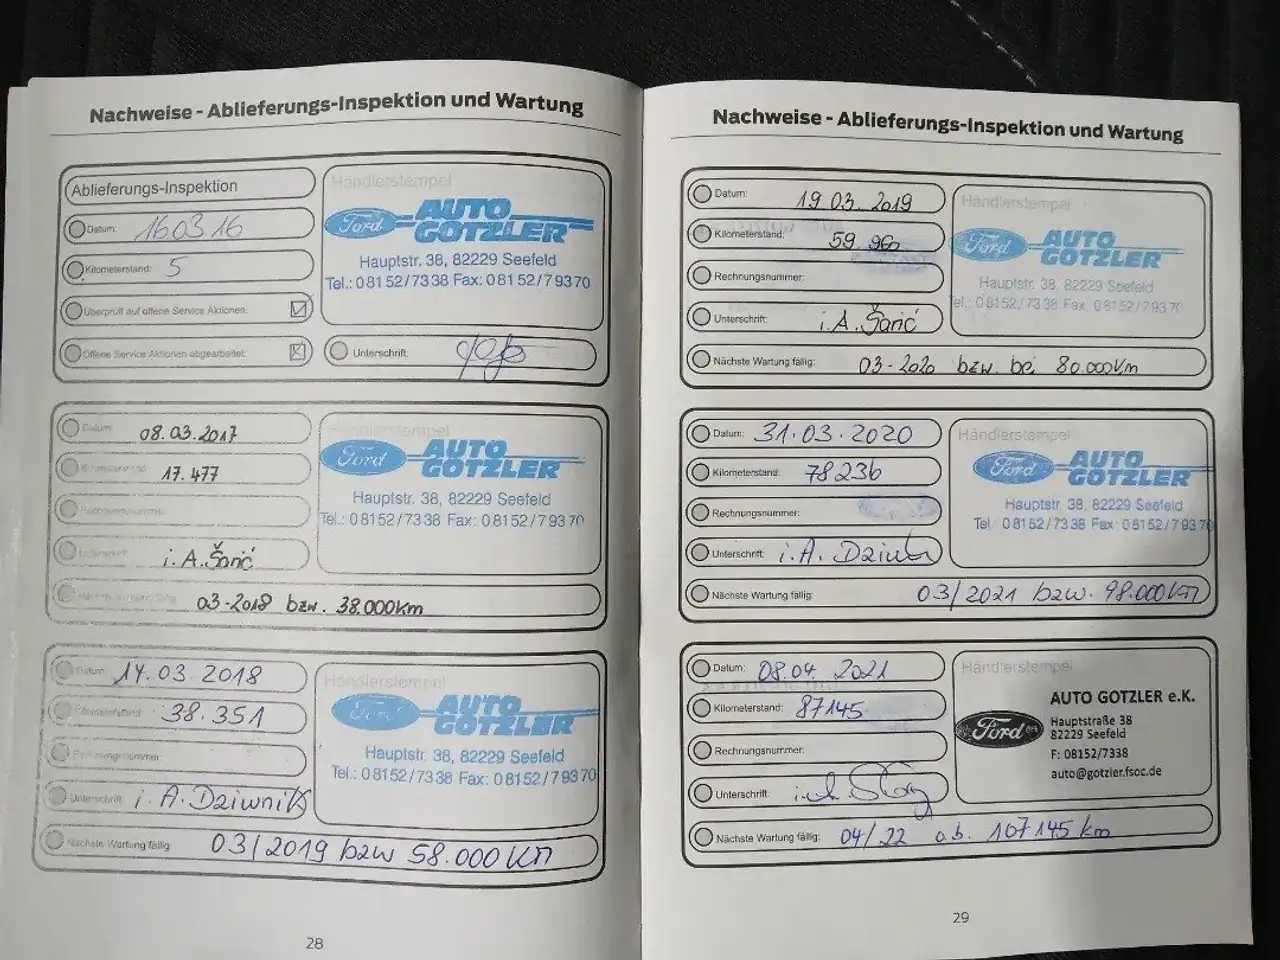 Nachweise - Ablieferungs-Inspektion und Wartung
Ablieferungs-Inspektion
Datum: 160316
Kilometerstand: 5
Überprüft auf offene Service Aktionen:
Offene Service Aktionen abgearbeitet:
Händlerstempel
Ford AUTO
GOTZLER
Hauptstr. 38, 82229 Seefeld
Tel.: 08152/7338 Fax: 08152/79370
Unterschrift:
Datum: 08.03.2017
Kilometerstand: 17.477
Rechnungsnummer:
Unterschrift: i.A. Šarić
Nächste Wartung fällig: 03-2018 bzw. 38.000km
Händlerstempel
Ford AUTO
GOTZLER
Hauptstr. 38, 82229 Seefeld
Tel.: 08152/7338 Fax: 08152/79370
Datum: 14.03.2018
Kilometerstand: 38.351
Rechnungsnummer:
Unterschrift: i.A. Dziwnik
Nächste Wartung fällig: 03/2019 bzw 58.000 Km
Händlerstempel
Ford AUTO
GOTZLER
Hauptstr. 38, 82229 Seefeld
Tel.: 08152/7338 Fax: 08152/79370
28
Nachweise - Ablieferungs-Inspektion und Wartung
Datum: 19 03. 2019
Kilometerstand: 59.960
Rechnungsnummer:
Unterschrift: i.A. Šarić
Nächste Wartung fällig: 03-2020 bzw. bei 80.000km
Händlerstempel
Ford AUTO
GOTZLER
Hauptstr. 38, 82229 Seefeld
Tel.: 08152/7338 Fax: 08152/79370
Datum: 31.03.2020
Kilometerstand: 78236
Rechnungsnummer:
Unterschrift: i.A. Dziwn
Nächste Wartung fällig: 03/2021 bzw. 98.000Km
Händlerstempel
Ford AUTO
GOTZLER
Hauptstr. 38, 82229 Seefeld
Tel.: 08152/7338 Fax: 08152/79370
Datum: 08.04. 2021
Kilometerstand: 87145
Rechnungsnummer:
Unterschrift:
Nächste Wartung fällig: 04/22 o.b. 107145 km
Händlerstempel
Ford
AUTO GOTZLER e.K.
Hauptstraße 38
82229 Seefeld
F: 08152/7338
auto@gotzler.fsoc.de
29